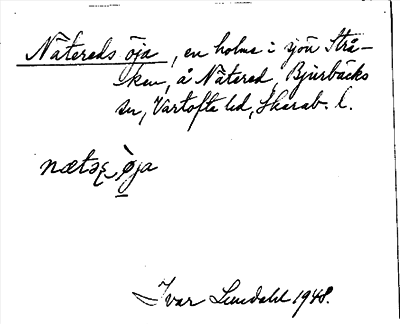 Nätereds öja, en holme i sjön Strå-
ken, å Nätered, Bjurbäcks
sn, Vartofta hd, Skarab. l.
Ivar Lundahl 1948.